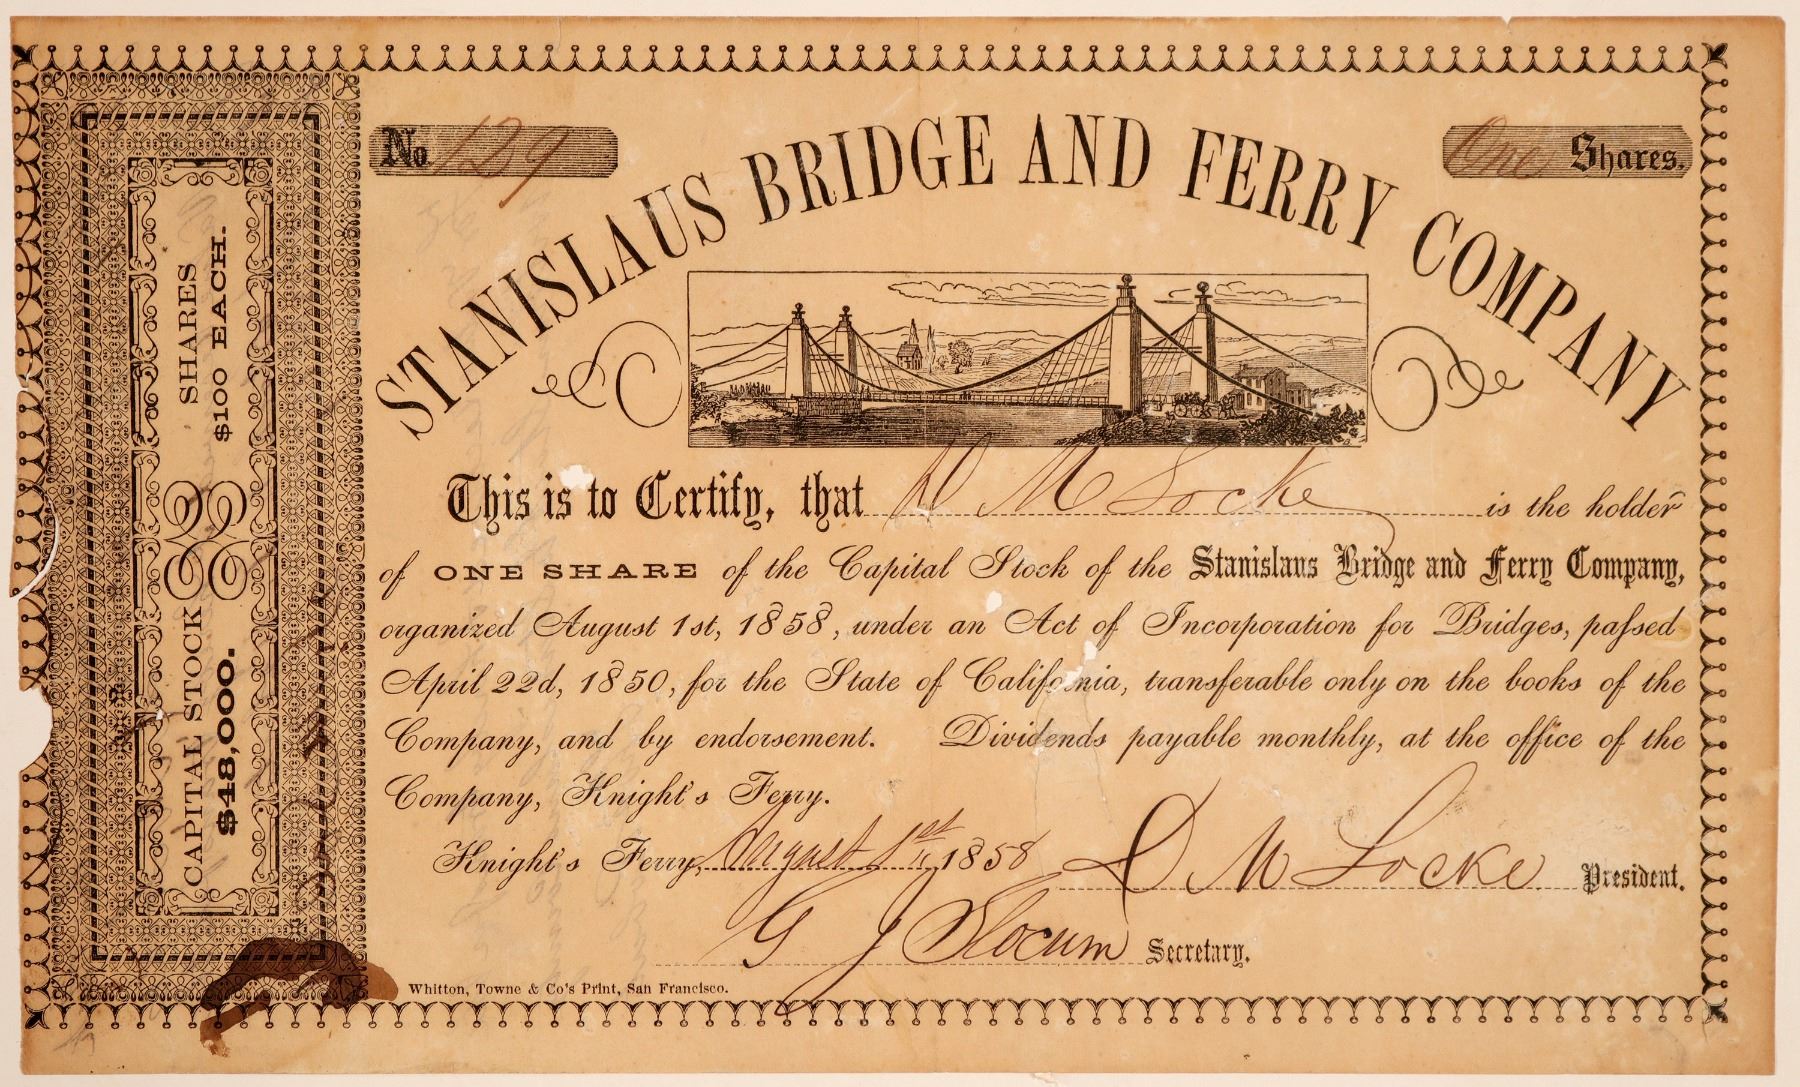 No. 129
One Shares.
STANISLAUS BRIDGE AND FERRY COMPANY
This is to Certify, that D M Locke is the holder
of ONE SHARE of the Capital Stock of the Stanislaus Bridge and Ferry Company,
organized August 1st, 1858, under an Act of Incorporation for Bridges, passed
April 22d, 1850, for the State of California, transferable only on the books of the
Company, and by endorsement. Dividends payable monthly, at the office of the
Company, Knight's Ferry.
Knight's Ferry, August 1st 1858
D M Locke President.
G J Slocum Secretary.
Whitton, Towne & Co's Print, San Francisco.
CAPITAL STOCK
$48,000.
SHARES
$100 EACH.